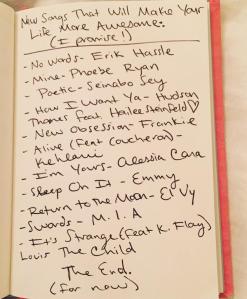 New Songs That Will Make Your
Life More Awesome:
(I promise!)
- No Words - Erik Hassle
- Mine - Phoebe Ryan
- Poetic - Seinabo Sey
- How I Want Ya - Hudson
Thames feat. Hailee Steinfeld ♡
- New Obsession - Frankie
- Alive (feat Coucheron) -
Kehlani
- I'm Yours - Alessia Cara
- Sleep On It - Emmy
- Return to the Moon - El Vy
- Swords - M.I.A
- It's Strange (feat K. Flay)
Louis The Child
The End.
(for now)